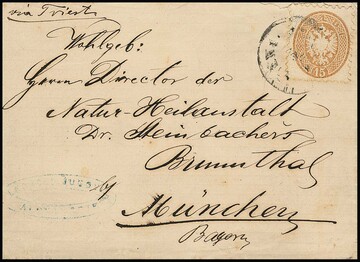 via Triest
Wohlgeb:
Herrn Director der
Natur-Heilanstalt
Dr. Steinbachers
Brunnthal
b/
München
Bayern
15